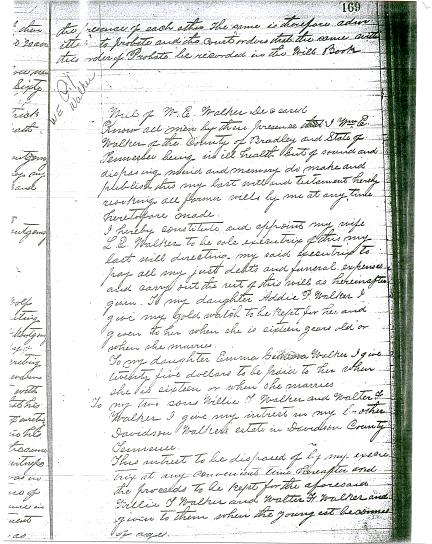 169
the presence of each other. The same is therefore admi
itted to probate and the Court orders that the same with
this order of Probate be recorded in the Will Book
W.E. Walker
Will of W. E. Walker Deceased
Know all men by these presence that I Wm E.
Walker of the County of Bradley and State of
Tennessee being in ill health but of sound and
disposing mind and memory do make and
publish this my last will and testament hereby
revoking all former wills by me at any time
heretofore made.
I hereby constitute and appoint my wife
L. E. Walker to be sole executrix of this my
last will directing my said executrix to
pay all my just debts and funeral expenses
and carry out the rest of this will as hereinafter
given. To my daughter Addie F. Walker I
give my gold watch to be kept for her and
given to her when she is sixteen years old or
when she marries.
To my daughter Emma Walker I give
twenty five dollars to be paid to her when
she is sixteen or when she marries
To my two sons Willie F Walker and Walter F
Walker I give my intrest in my brother
Davidson Walkers estate in Davidson County
Tennessee.
This intrest to be disposed of by my execu
trix at any convenient time hereafter and
the proceeds to be kept for the aforesaid
Willie F Walker and Walter F. Walker and
given to them when the youngest becomes
of age.